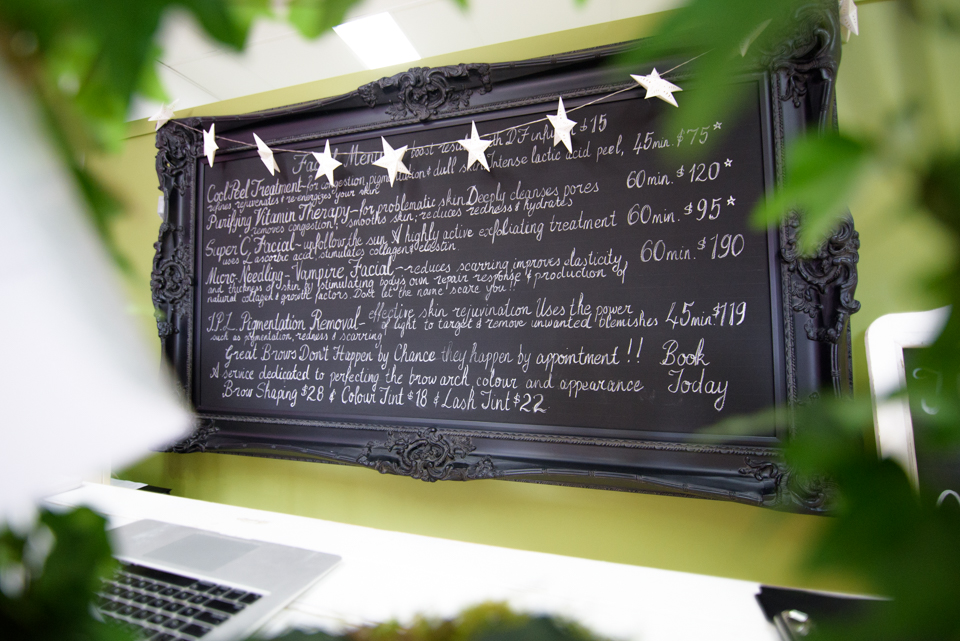 Facial Menu boost result with DF infusion $15
Cool Peel Treatment - for congestion, pigmentation & dull skin. Intense lactic acid peel, 45min. $75*
refines rejuvenates & re-energizes your skin
Purifying Vitamin Therapy - for problematic skin. Deeply cleanses pores 60min. $120*
removes congestion, smooths skin, reduces redness & hydrates
Super C, Facial - up follow the sun. A highly active exfoliating treatment 60min. $95*
uses L, ascorbic acid, stimulates collagen & elastin
Micro-Needling - Vampire, Facial - reduces scarring improves elasticity, 60min. $190
and thickness of skin by stimulating body's own repair response & production of
natural collagen & growth factors. Don't let the name scare you!!
I.P.L. Pigmentation Removal - effective skin rejuvination Uses the power
of light to target & remove unwanted blemishes 45min. $119
such as pigmentation, redness & scarring
Great Brows Don't Happen by Chance they happen by appointment!! Book
A service dedicated to perfecting the brow arch, colour and appearance Today
Brow Shaping $28 & Colour Tint $18 & Lash Tint $22